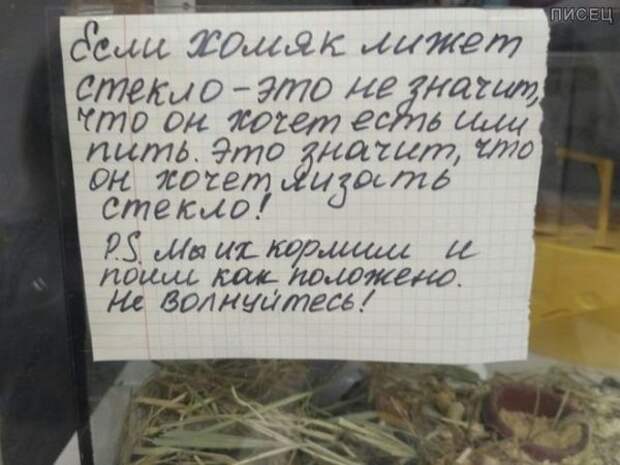 ПИСЕЦ
Если хомяк лижет
стекло - это не значит,
что он хочет есть или
пить. Это значит, что
он хочет лизать
стекло!
P.S. Мы их кормим и
поим как положено.
Не волнуйтесь!